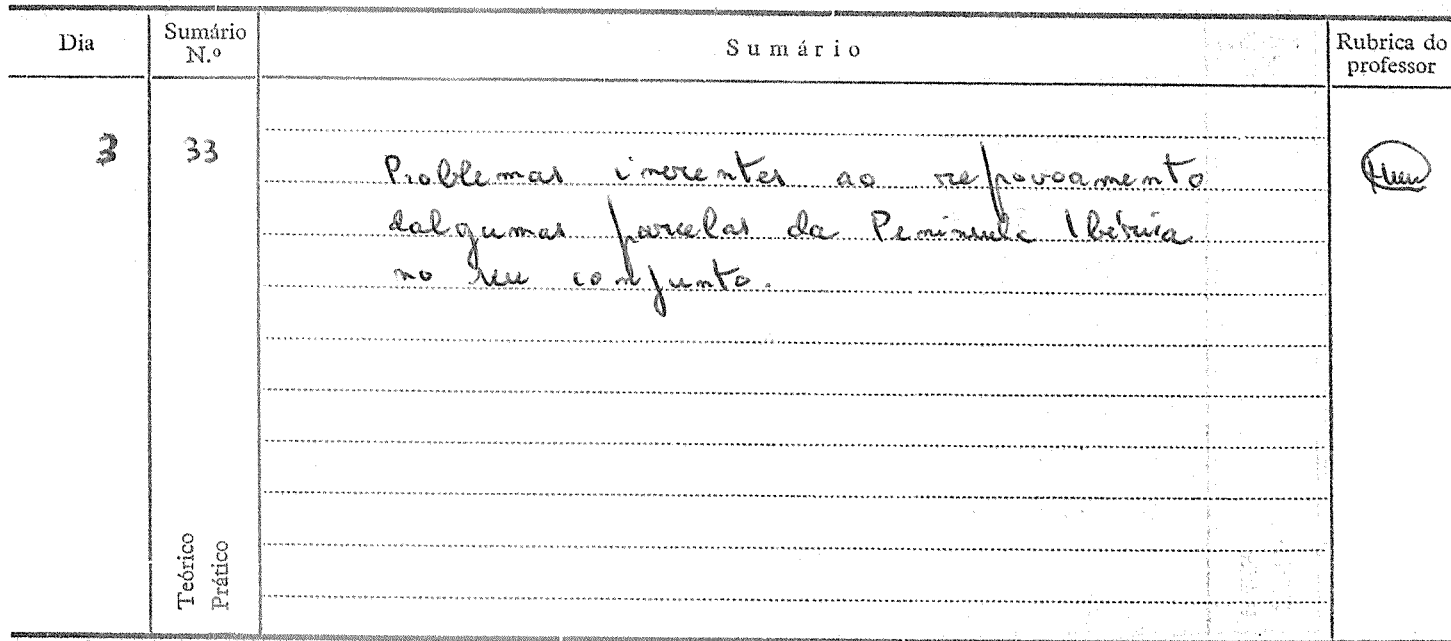 Dia
Sumário N.º
Sumário
Rubrica do professor
3
33
Problemas inerentes ao repovoamento
dalgumas parcelas da Península Ibérica
no seu conjunto.
Teórico
Prático